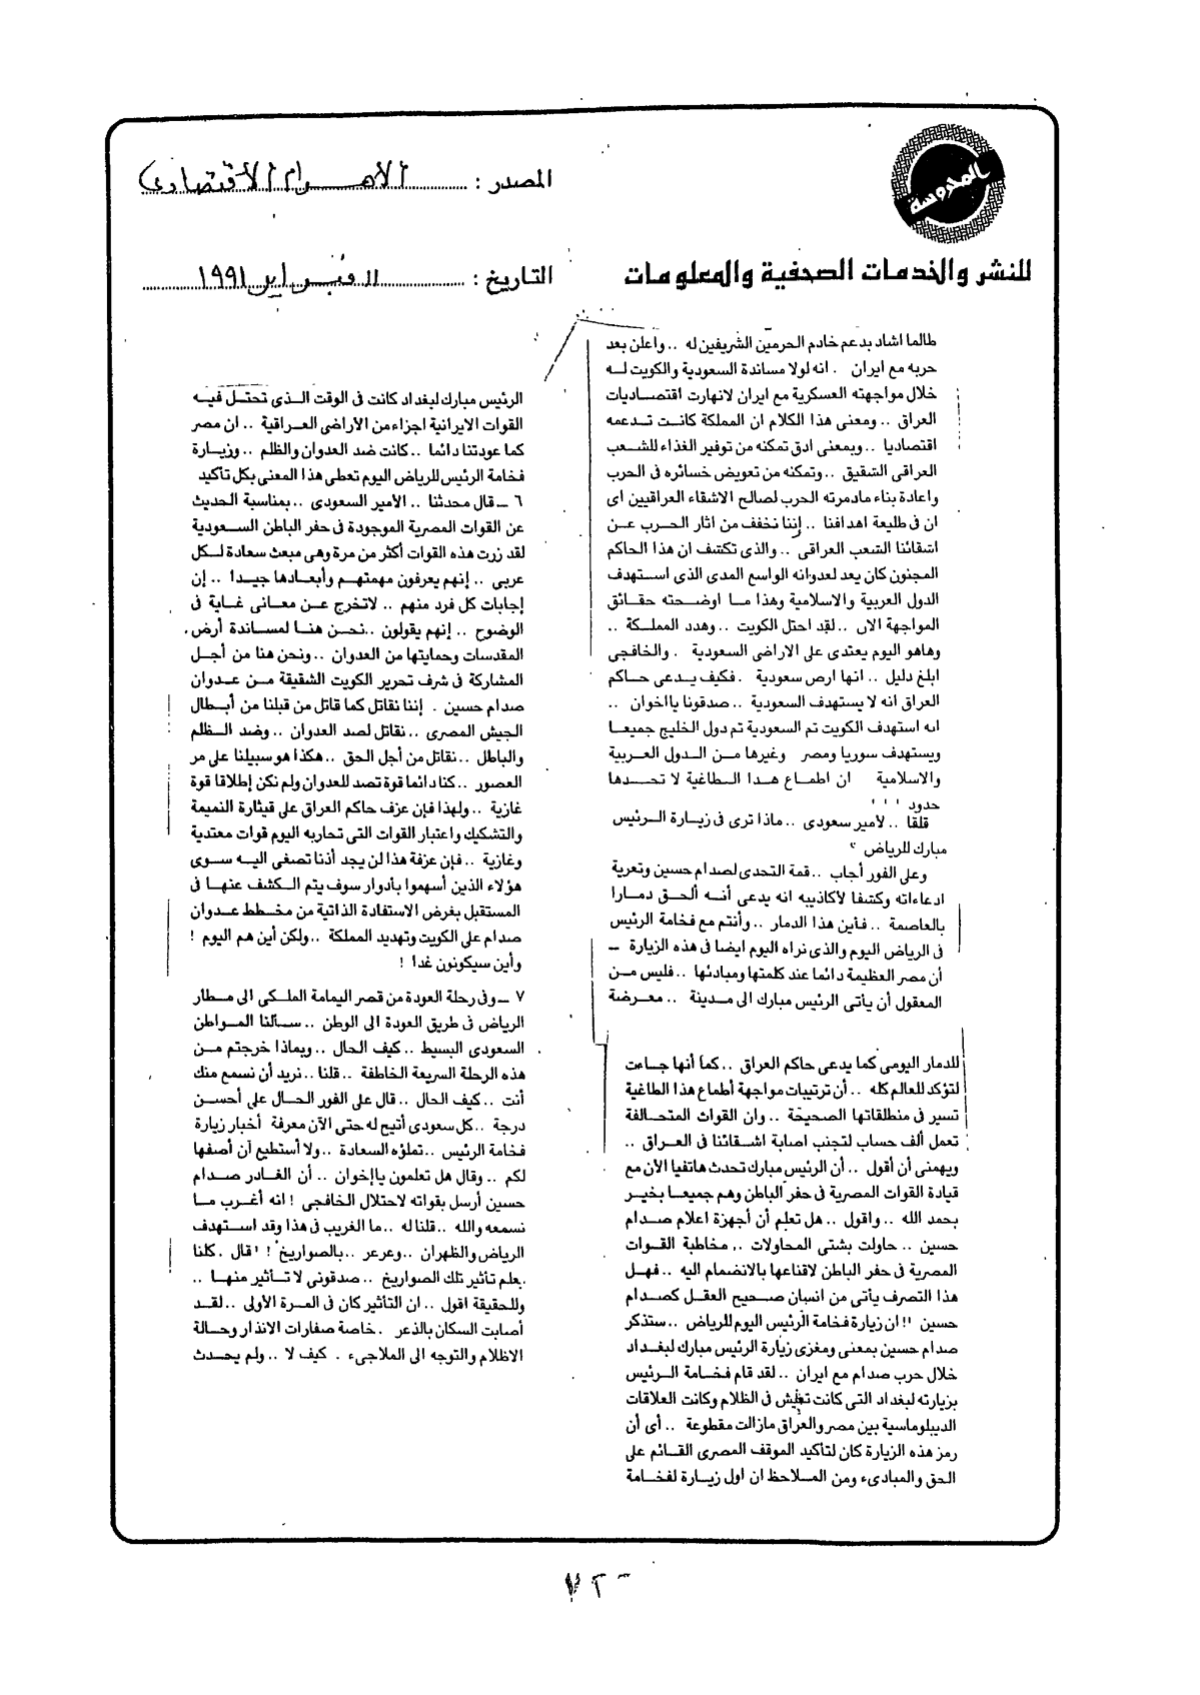 المحروسة
للنشر والخدمات الصحفية والمعلومات
المصدر : الأهرام الاقتصادى
التاريخ : ١١ فبراير ١٩٩١
طالما اشاد بدعم خادم الحرمين الشريفين له .. واعلن بعد
حربه مع ايران . انه لولا مساندة السعودية والكويت لـه
خلال مواجهته العسكرية مع ايران لانهارت اقتصاديات
العراق .. ومعنى هذا الكلام ان المملكة كانت تدعمه
اقتصاديا .. وبمعنى ادق تمكنه من توفير الغذاء للشعب
العراقى الشقيق .. وتمكنه من تعويض خسائره فى الحرب
واعادة بناء مادمرته الحرب لصالح الاشقاء العراقيين اى
ان فى طليعة اهدافنا .. إننا نخفف من اثار الحرب عن
اشقائنا الشعب العراقى .. والذى تكشف ان هذا الحاكم
المجنون كان يعد لعدوانه الواسع المدى الذى استهدف
الدول العربية والاسلامية وهذا ما اوضحته حقائق
المواجهة الان .. لقد احتل الكويت .. وهدد المملكة ..
وهاهو اليوم يعتدى على الاراضى السعودية . والخافجى
ابلغ دليل .. انها ارص سعودية . فكيف يدعى حاكم
العراق انه لا يستهدف السعودية .. صدقونا يااخوان ..
انه استهدف الكويت تم السعودية تم دول الخليج جميعا
ويستهدف سوريا ومصر وغيرها من الدول العربية
والاسلامية ان اطماع هدا الطاغية لا تحدها
حدود ! ! !
قلقا .. لأمير سعودى .. ماذا ترى فى زيارة الرئيس
مبارك للرياض ؟
وعلى الفور أجاب .. قمة التحدى لصدام حسين وتعرية
ادعاءاته وكشفا لأكاذيبه انه يدعى أنه ألحق دمارا
بالعاصمة .. فأين هذا الدمار .. وأنتم مع فخامة الرئيس
فى الرياض اليوم والذى نراه اليوم ايضا فى هذه الزيارة ــ
أن مصر العظيمة دائما عند كلمتها ومبادئها .. فليس من
المعقول أن يأتى الرئيس مبارك الى مدينة .. معرضة
للدمار اليومى كما يدعى حاكم العراق .. كما أنها جاءت
لتؤكد للعالم كله .. أن ترتيبات مواجهة أطماع هذا الطاغية
تسير فى منطلقاتها الصحيحة .. وان القوات المتحالفة
تعمل ألف حساب لتجنب اصابة اشقائنا فى العراق ..
ويهمنى أن أقول .. أن الرئيس مبارك تحدث هاتفيا الأن مع
قيادة القوات المصرية فى حفر الباطن وهم جميعا بخير
بحمد الله .. واقول .. هل تعلم أن أجهزة اعلام صدام
حسين .. حاولت بشتى المحاولات .. مخاطبة القوات
المصرية فى حفر الباطن لاقناعها بالانضمام اليه .. فهل
هذا التصرف يأتى من انسان صحيح العقل كصدام
حسين !! ان زيارة فخامة الرئيس اليوم للرياض .. ستذكر
صدام حسين بمعنى ومغزى زيارة الرئيس مبارك لبغداد
خلال حرب صدام مع ايران .. لقد قام فخامة الرئيس
بزيارته لبغداد التى كانت تعيش فى الظلام وكانت العلاقات
الدبلوماسية بين مصر والعراق مازالت مقطوعة .. أى أن
رمز هذه الزيارة كان لتأكيد الموقف المصرى القائم على
الحق والمبادىء ومن الملاحظ ان اول زيارة لفخامة
الرئيس مبارك لبغداد كانت فى الوقت الذى تحتل فيه
القوات الايرانية اجزاء من الأراضى العراقية .. ان مصر
كما عودتنا دائما .. كانت ضد العدوان والظلم .. وزيارة
فخامة الرئيس للرياض اليوم تعطى هذا المعنى بكل تأكيد
٦ ــ قال محدثنا .. الأمير السعودى .. بمناسبة الحديث
عن القوات المصرية الموجودة فى حفر الباطن السعودية
لقد زرت هذه القوات أكثر من مرة وهى مبعث سعادة لكل
عربى .. إنهم يعرفون مهمتهم وأبعادها جيدا .. إن
إجابات كل فرد منهم .. لاتخرج عن معانى غاية فى
الوضوح .. إنهم يقولون .. نحن هنا لمساندة أرض
المقدسات وحمايتها من العدوان .. ونحن هنا من أجل
المشاركة فى شرف تحرير الكويت الشقيقة من عدوان
صدام حسين . إننا نقاتل كما قاتل من قبلنا من أبطال
الجيش المصرى .. نقاتل لصد العدوان .. وضد الظلم
والباطل .. نقاتل من أجل الحق .. هكذا هو سبيلنا على مر
العصور .. كنا دائما قوة تصد للعدوان ولم نكن إطلاقا قوة
غازية .. ولهذا فإن عزف حاكم العراق على قيثارة النميمة
والتشكيك واعتبار القوات التى تحاربه اليوم قوات معتدية
وغازية .. فإن عزفة هذا لن يجد أذنا تصغى اليه سوى
هؤلاء الذين أسهموا بأدوار سوف يتم الكشف عنها فى
المستقبل بغرض الاستفادة الذاتية من مخطط عدوان
صدام على الكويت وتهديد المملكة .. ولكن أين هم اليوم !
وأين سيكونون غدا !
٧ ــ وفى رحلة العودة من قصر اليمامة الملكى الى مطار
الرياض فى طريق العودة الى الوطن .. سألنا المواطن
السعودى البسيط .. كيف الحال .. وبماذا خرجتم من
هذه الرحلة السريعة الخاطفة .. قلنا .. نريد أن نسمع منك
أنت .. كيف الحال .. قال على الفور الحال على أحسن
درجة .. كل سعودى أتيح له حتى الآن معرفة أخبار زيارة
فخامة الرئيس .. تملؤه السعادة .. ولا أستطيع أن أصفها
لكم .. وقال هل تعلمون ياإخوان .. أن الغادر صدام
حسين أرسل بقواته لاحتلال الخافجى ! انه أغرب ما
نسمعه والله .. قلنا له .. ما الغريب فى هذا وقد استهدف
الرياض والظهران .. وعرعر .. بالصواريخ ! قال . كلنا
يعلم تأثير تلك الصواريخ .. صدقونى لا تأثير منها ..
وللحقيقة اقول .. ان التأثير كان فى المرة الأولى .. لقد
أصابت السكان بالذعر . خاصة صفارات الانذار وحالة
الاظلام والتوجه الى الملاجىء . كيف لا .. ولم يحدث